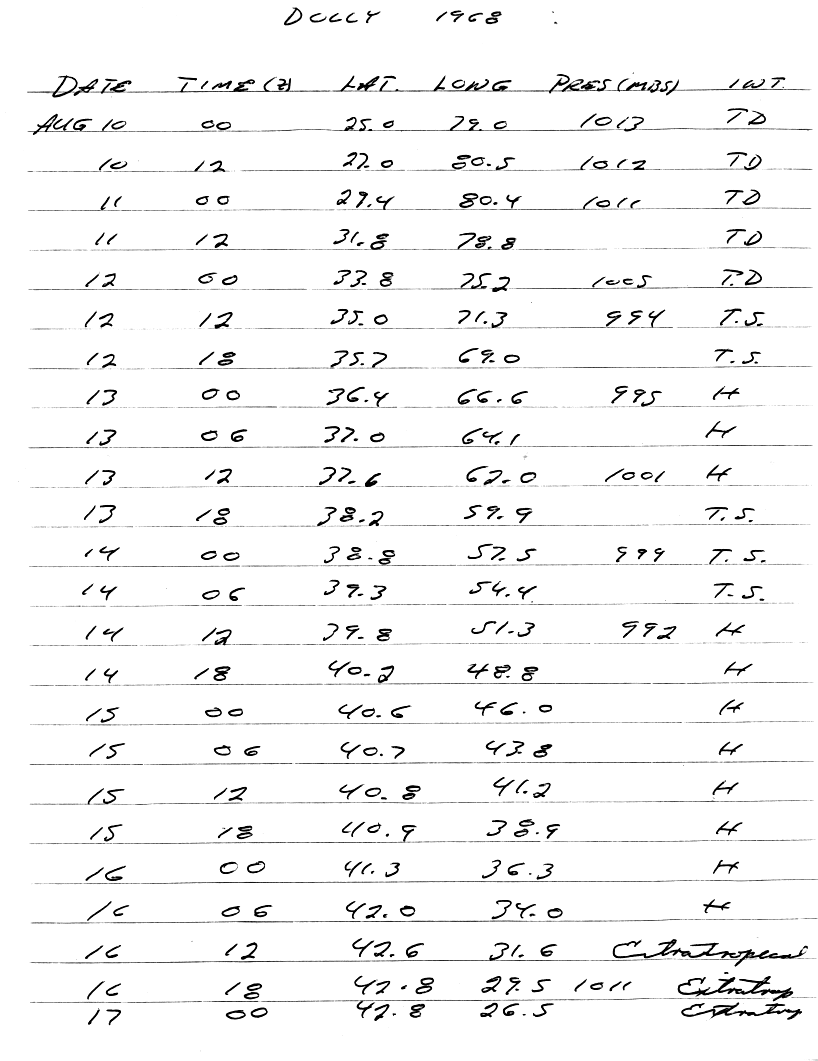 DOLLY 1968
DATE TIME (Z) LAT. LONG PRES (MBS) INT.
AUG 10 00 25.0 79.0 1013 TD
10 12 27.0 80.5 1012 TD
11 00 29.4 80.4 1011 TD
11 12 31.8 78.8 TD
12 00 33.8 75.2 1005 T.D
12 12 35.0 71.3 994 T.S.
12 18 35.7 69.0 T.S.
13 00 36.4 66.6 995 H
13 06 37.0 64.1 H
13 12 37.6 62.0 1001 H
13 18 38.2 59.9 T.S.
14 00 38.8 57.5 999 T.S.
14 06 39.3 54.4 T.S.
14 12 39.8 51.3 992 H
14 18 40.2 48.8 H
15 00 40.6 46.0 H
15 06 40.7 43.8 H
15 12 40.8 41.2 H
15 18 40.9 38.9 H
16 00 41.3 36.3 H
16 06 42.0 34.0 H
16 12 42.6 31.6 Extratropical
16 18 42.8 29.5 1011 Extratrop
17 00 42.8 26.5 Extratrop